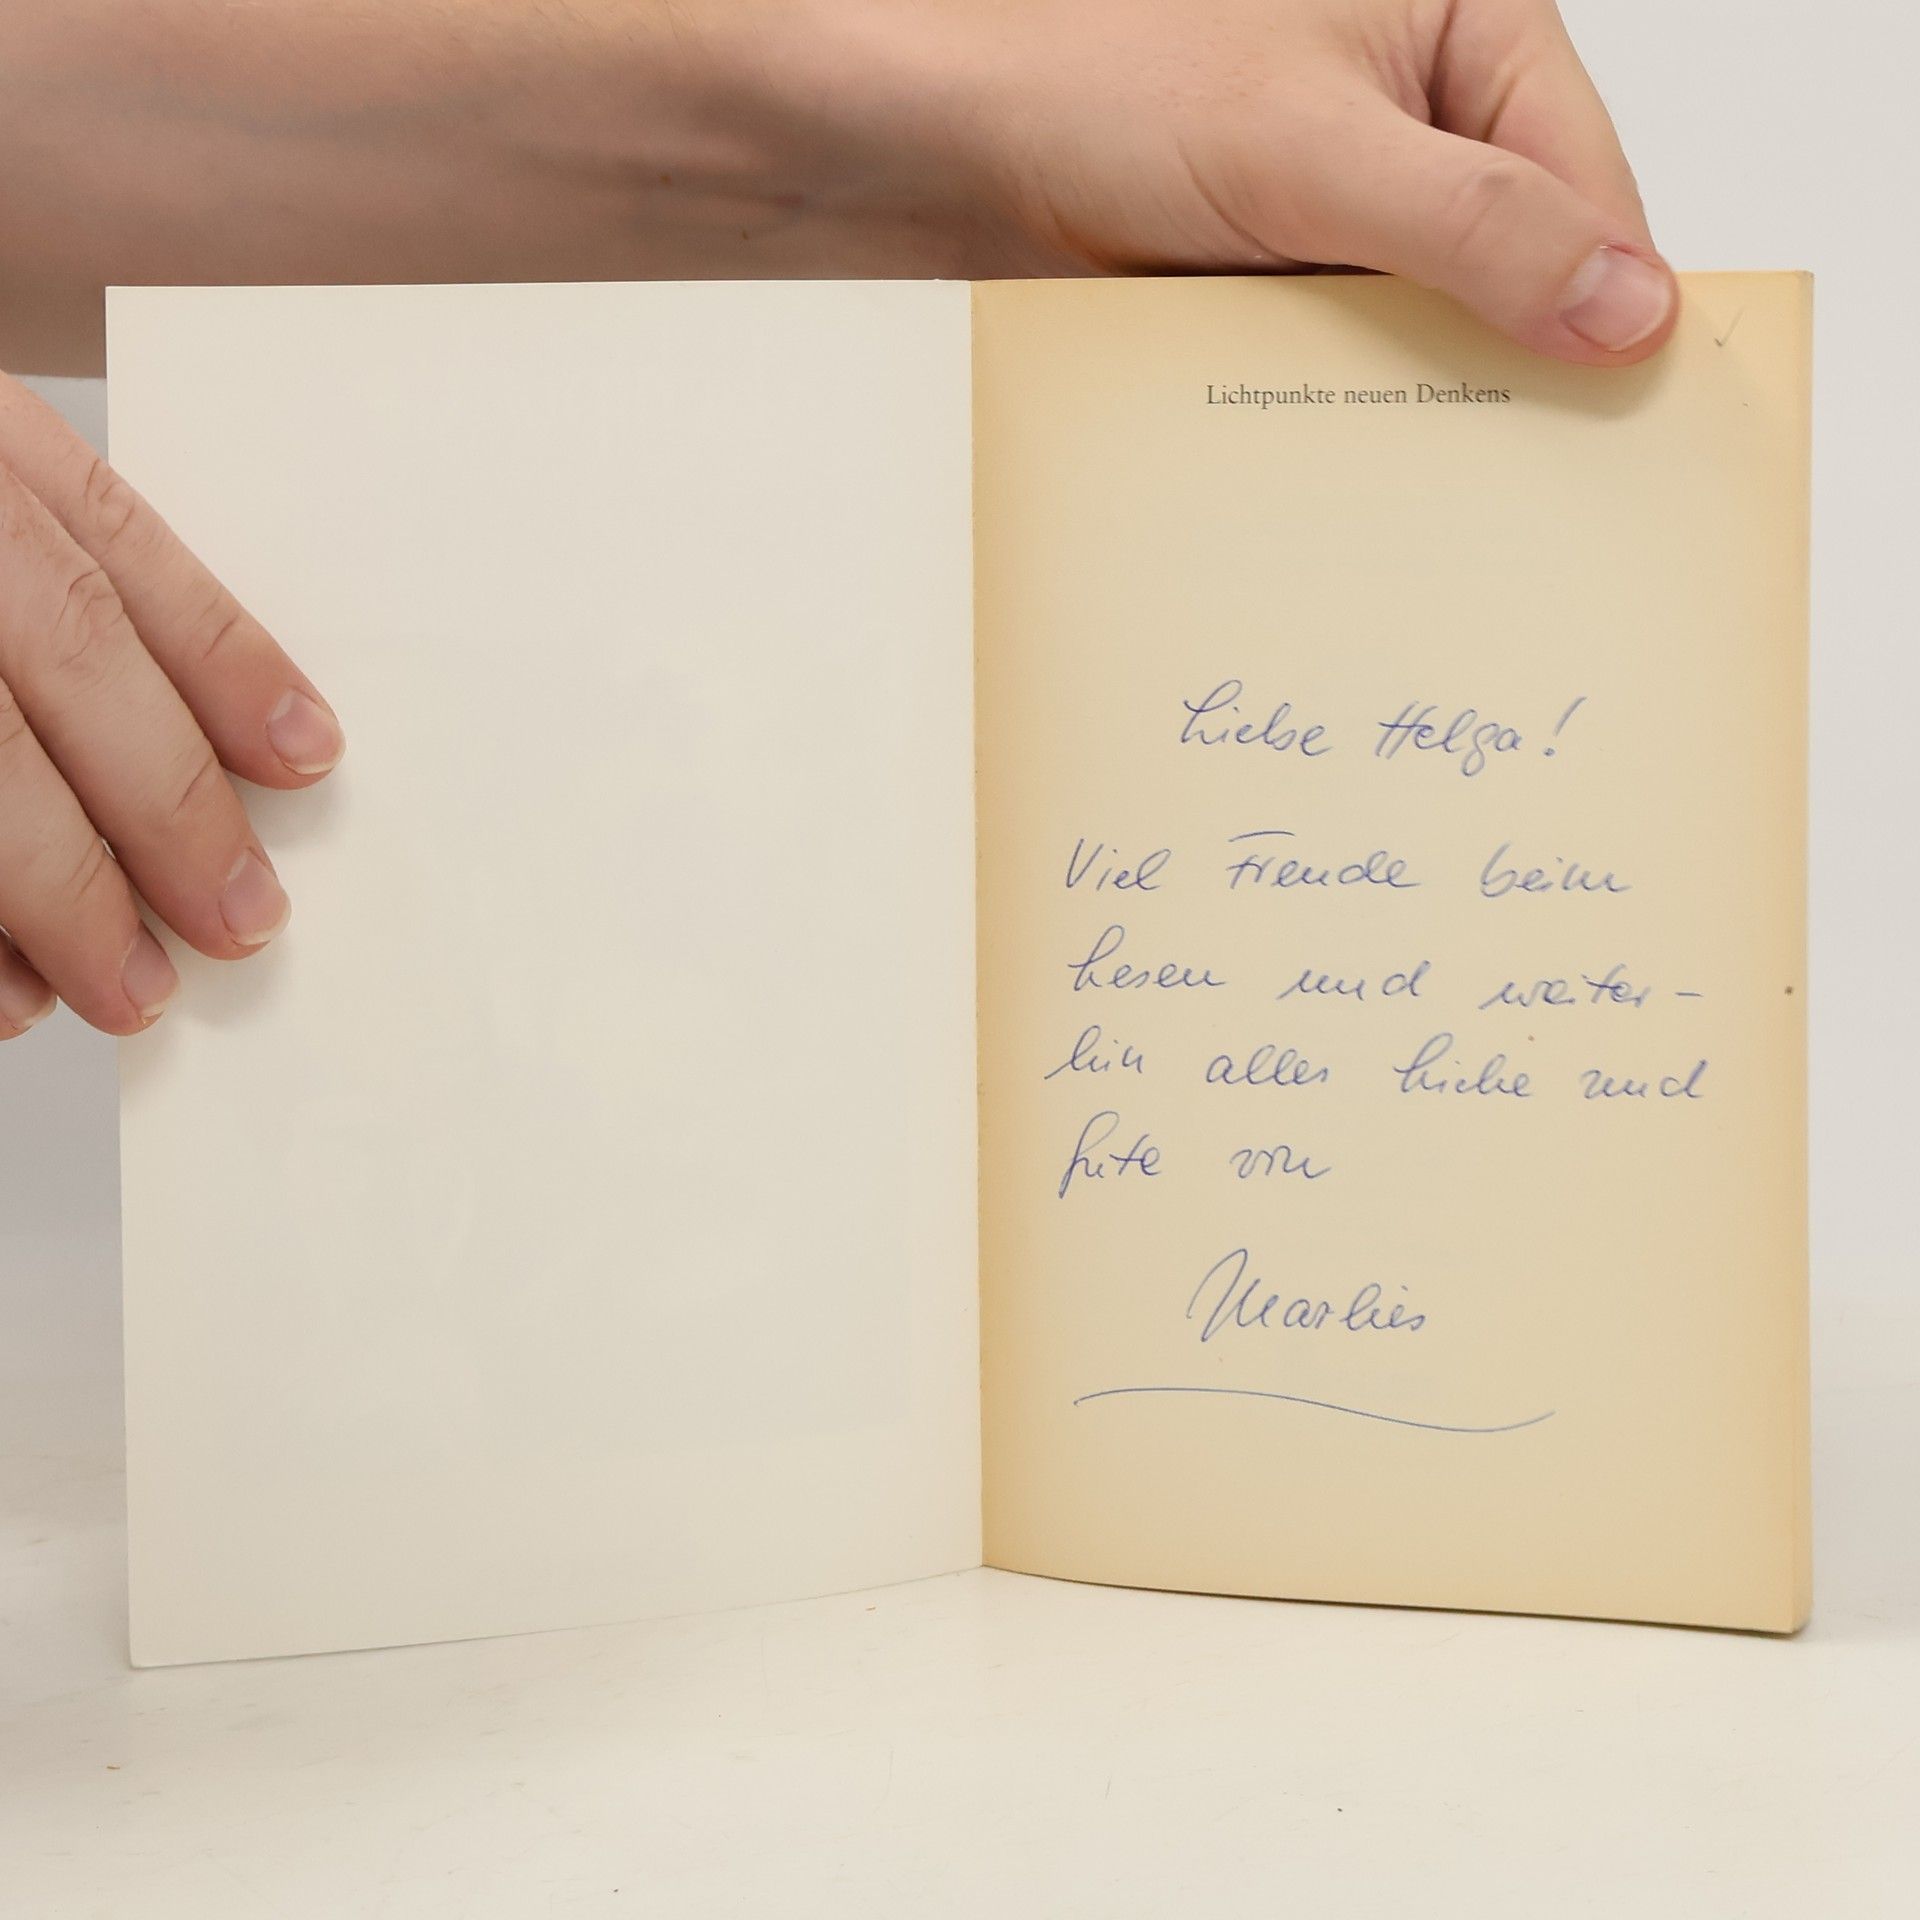 Lichtpunkte neuen Denkens
Liebe Helga!
Viel Freude beim
Lesen und weiter-
hin alles Liebe und
Gute von
Marlies